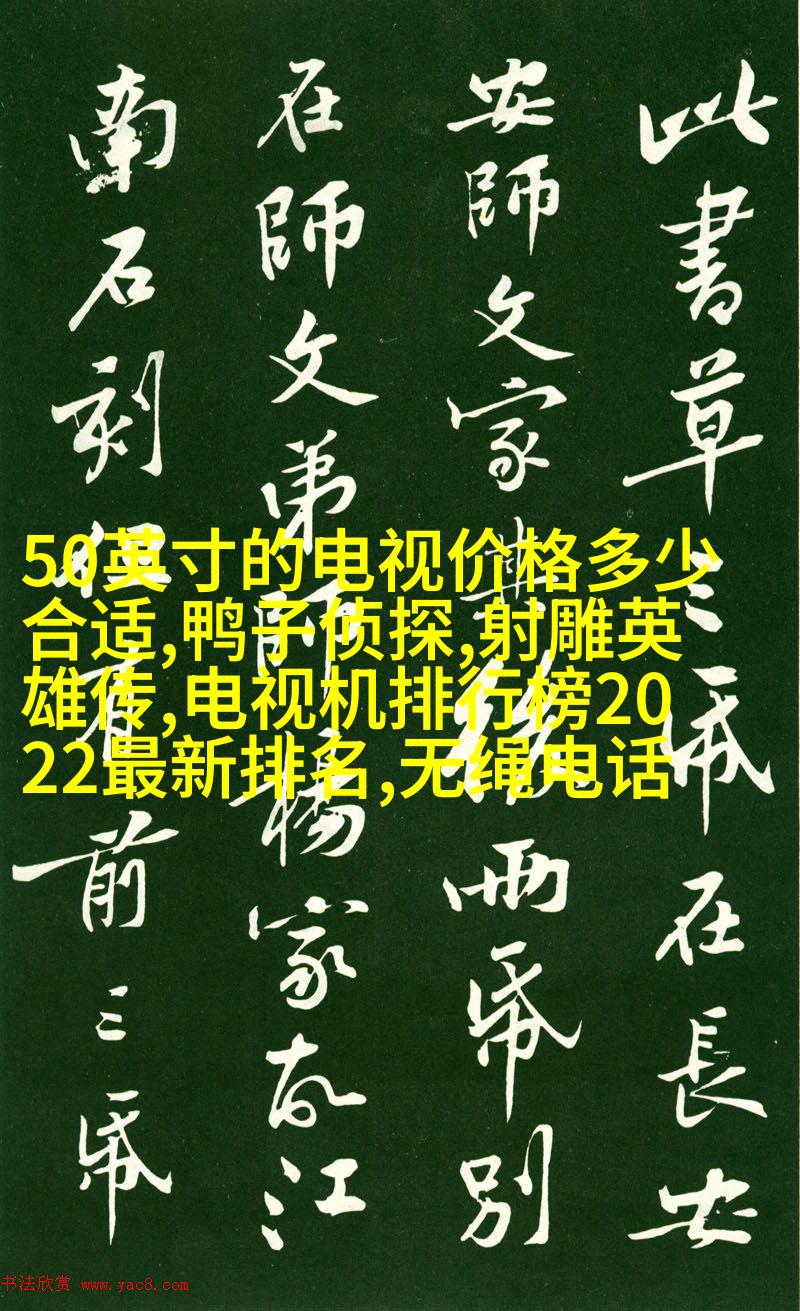 此書草三帋在長安
安師文家兩帋別
在師文弟師楊家故江
南石刻但有前三帋
50英寸的电视价格多少
合适,鸭子侦探,射雕英
雄传,电视机排行榜20
22最新排名,无绳电话
书法欣赏 www.yac8.com